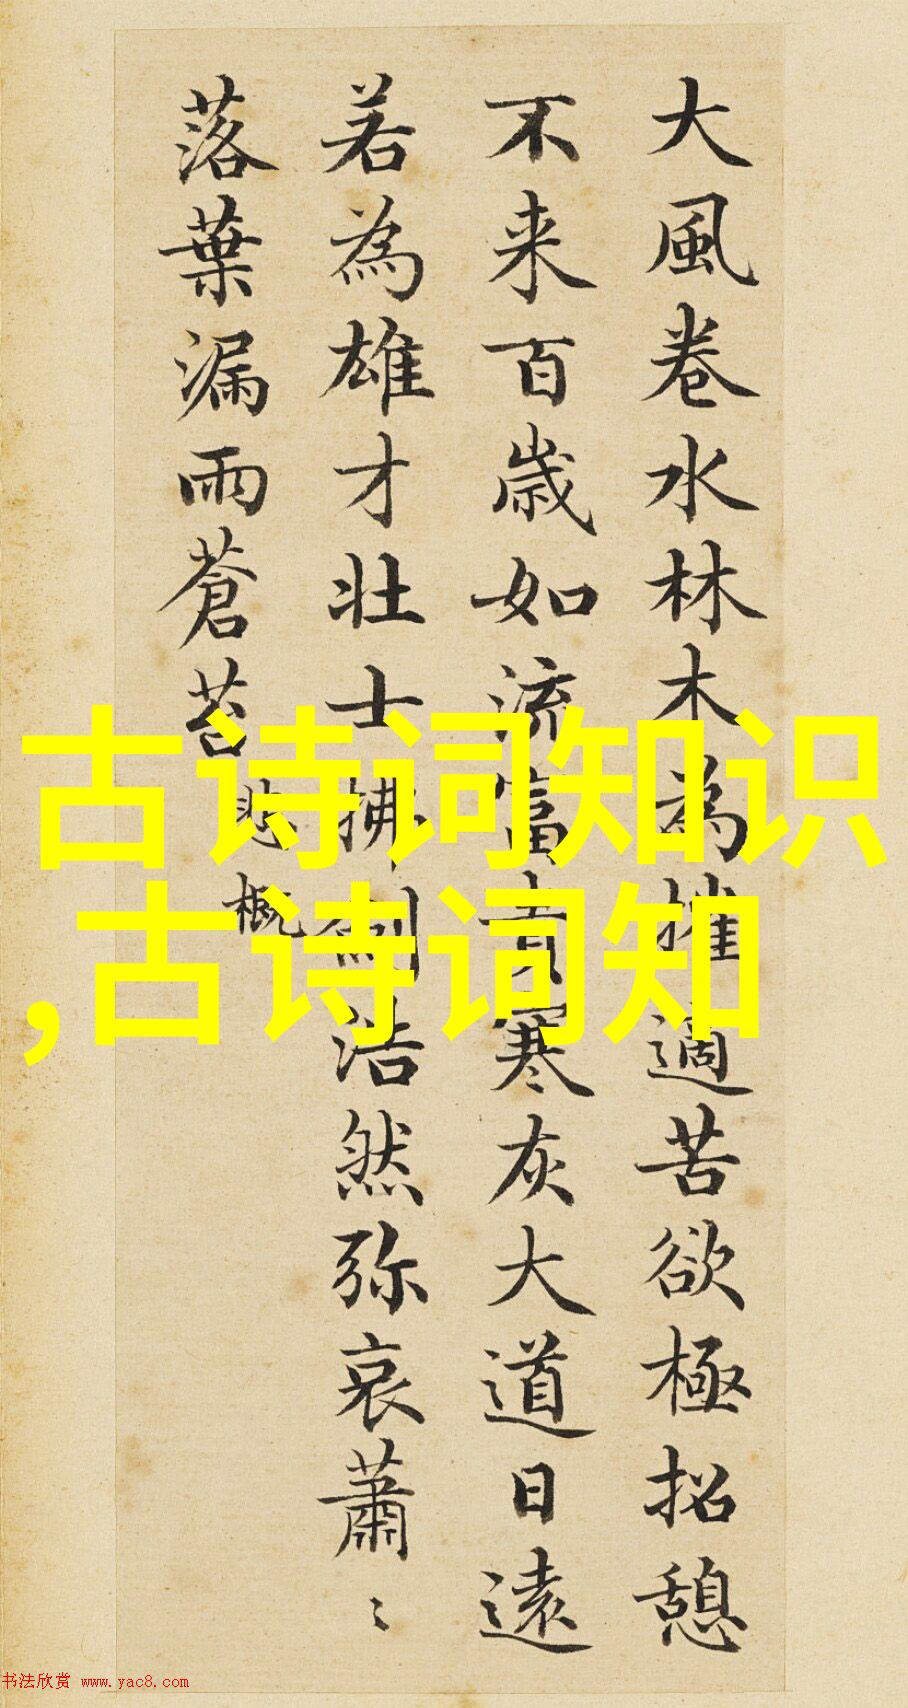 大風卷水林木為摧適苦欲極招憩
不来百歳如流富貴寒灰大道日遠
若為雄才壮士拂劍浩然弥哀蕭〻
落葉漏雨蒼苔
悲概
古诗词知识
,古诗词知
书法欣赏 www.yac8.com